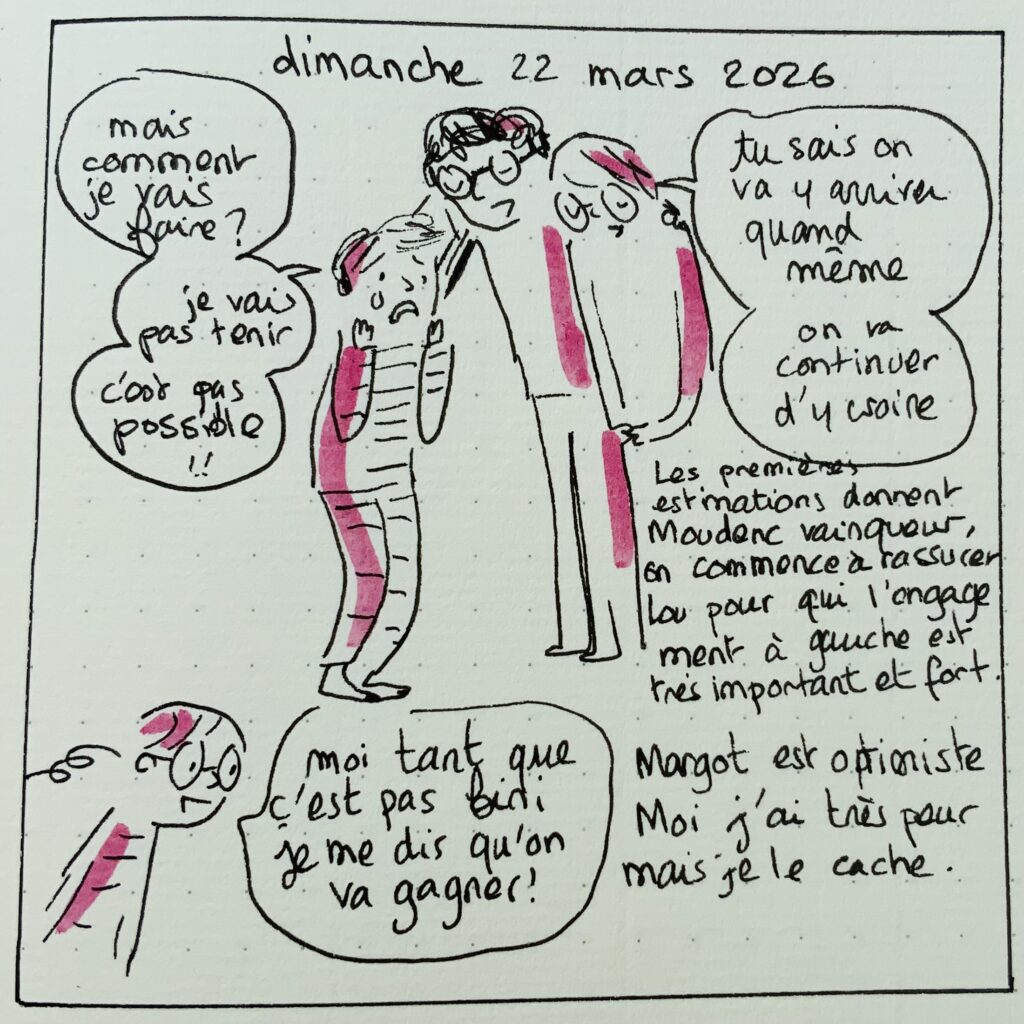 dimanche 22 mars 2026
mais
comment
je vais
faire ?
je vais
pas tenir
c'est pas
possible
!!
tu sais on
va y arriver
quand
même
on va
continuer
d'y croire
Les premières
estimations donnent
Moudenc vainqueur,
on commence à rassurer
Lou pour qui l'engage
ment à gauche est
très important et fort.
moi tant que
c'est pas fini
je me dis qu'on
va gagner!
Margot est optimiste
Moi j'ai très peur
mais je le cache.